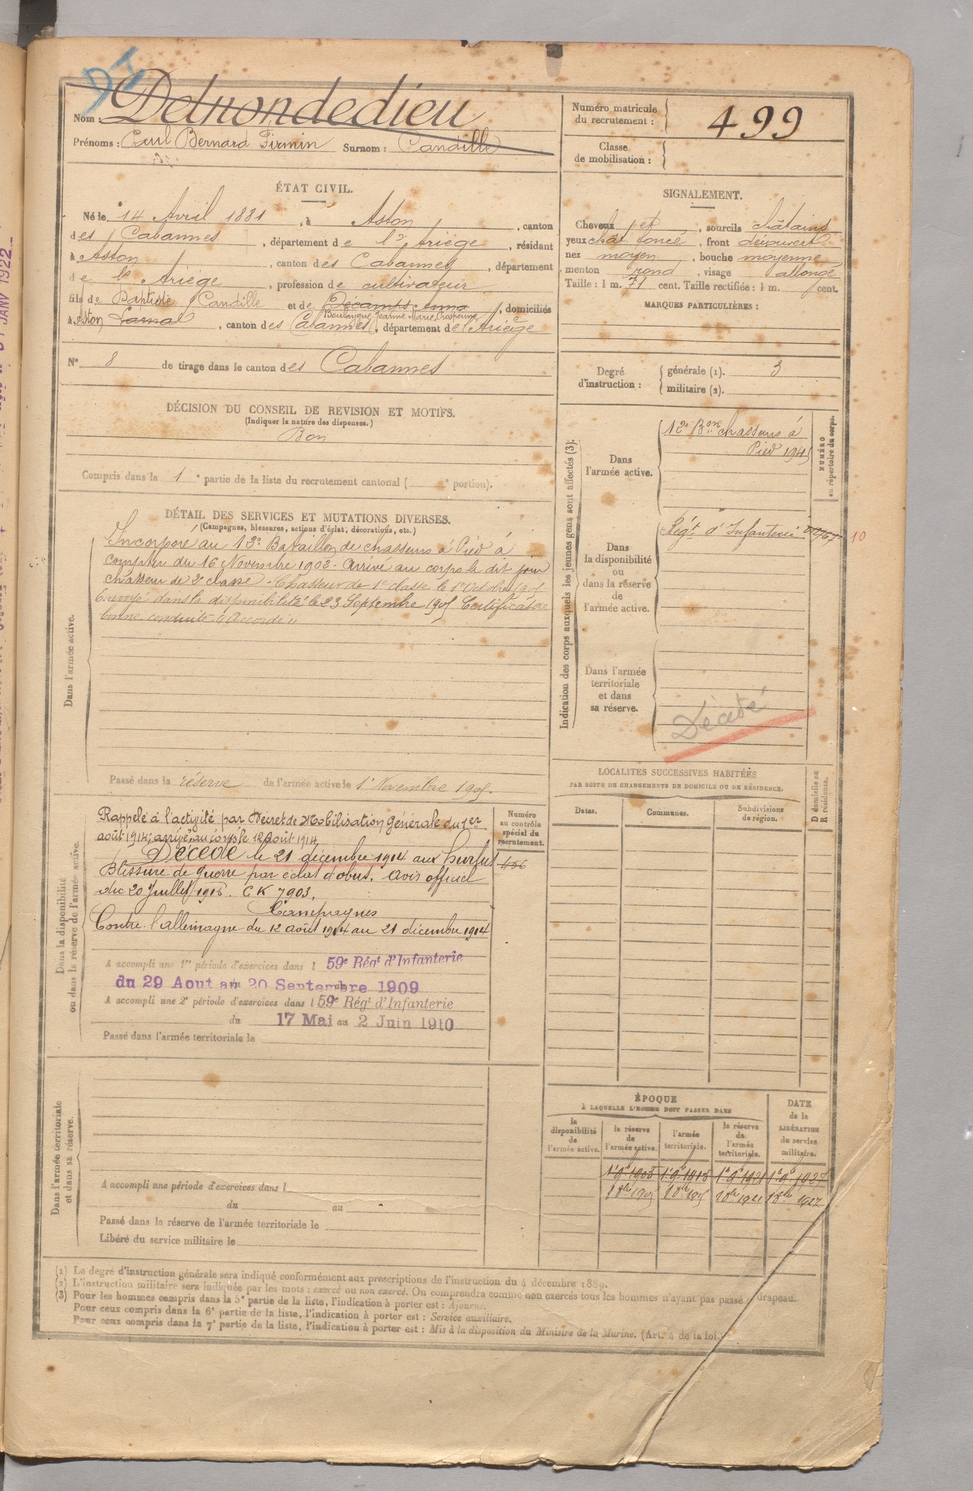 DI
Nom : Detrondedieu
Prénoms : Paul Bernard Firmin Surnom : Candille
Numéro matricule du recrutement : 499
Classe de mobilisation :
ÉTAT CIVIL.
Né le 14 Avril 1881, à Aston, canton
des Cabannes, département de l'Ariège, résidant
à Aston, canton des Cabannes, département
de l'Ariège, profession de cultivateur
fils de Baptiste Candille et de Décamps Anna, domiciliés
Jeanne Marie
à Aston, canton des Cabannes, département de l'Ariège
N° 8 de tirage dans le canton des Cabannes
SIGNALEMENT.
Cheveux, sourcils châtains
yeux chat foncé, front découvert
nez moyen, bouche moyenne
menton rond, visage allongé
Taille : 1 m. 71 cent. Taille rectifiée : 1 m. cent.
MARQUES PARTICULIÈRES :
Degré d'instruction : générale (1). 3
militaire (2).
DÉCISION DU CONSEIL DE REVISION ET MOTIFS.
(Indiquer la nature des dispenses.)
Bon
Compris dans la 1e partie de la liste du recrutement cantonal ( e portion).
DÉTAIL DES SERVICES ET MUTATIONS DIVERSES.
(Campagnes, blessures, actions d'éclat, décorations, etc.)
Dans l'armée active.
Incorporé au 12e Bataillon de chasseurs à Pied à
compter du 16 Novembre 1902. Arrivé au corps le dit jour
chasseur de 2e classe. Chasseur de 1e classe le 1er Octobre
Envoyé dans la disponibilité le 23 Septembre 1905 Certificat de
bonne conduite "Accordé"
Passé dans la réserve de l'armée active le 1er Novembre 1905.
Indication des corps auxquels les jeunes gens sont affectés (3).
NUMÉRO au répertoire du corps.
Dans l'armée active.
12e Bon chasseurs à
Pied
Dans la disponibilité ou dans la réserve de l'armée active.
Régt d'Infanterie
10
Dans l'armée territoriale et dans sa réserve.
Décédé
LOCALITÉS SUCCESSIVES HABITÉES
PAR SUITE DE CHANGEMENTS DE DOMICILE OU DE RÉSIDENCE.
Dates. Communes. Subdivisions de région. D domicile ou R résidence.
Dans la disponibilité ou dans la réserve de l'armée active.
Numéro au contrôle spécial du recrutement.
Rappelé à l'activité par Décret de Mobilisation Générale du 1er
août 1914; arrivé au corps le 12 août 1914
Décédé le 21 décembre 1914 aux Hurlus
Blessure de guerre par éclat d'obus. Avis officiel
du 20 Juillet 1915. CK 7903.
Campagnes
Contre l'allemagne du 12 août 1914 au 21 décembre 1914
A accompli une 1re période d'exercices dans l 59e Régt d'Infanterie
du 29 Aout au 20 Septembre 1909
A accompli une 2e période d'exercices dans l 59e Régt d'Infanterie
du 17 Mai au 2 Juin 1910
Passé dans l'armée territoriale le
Dans l'armée territoriale et dans sa réserve.
A accompli une période d'exercices dans l
du au
Passé dans la réserve de l'armée territoriale le
Libéré du service militaire le
ÉPOQUE
À LAQUELLE L'HOMME DOIT PASSER DANS
DATE de la LIBÉRATION du service militaire.
la disponibilité de l'armée active. la réserve de l'armée active. l'armée territoriale. la réserve de l'armée territoriale.
(1) Le degré d'instruction générale sera indiqué conformément aux prescriptions de l'instruction du 4 décembre 1889.
(2) L'instruction militaire sera indiquée par les mots : exercé ou non exercé. On comprendra comme non exercés tous les hommes n'ayant pas passé drapeau.
(3) Pour les hommes compris dans la 5e partie de la liste, l'indication à porter est : Ajourné.
Pour ceux compris dans la 6e partie de la liste, l'indication à porter est : Service auxiliaire.
Pour ceux compris dans la 7e partie de la liste, l'indication à porter est : Mis à la disposition du Ministre de la Marine. (Art. 4 de la loi.